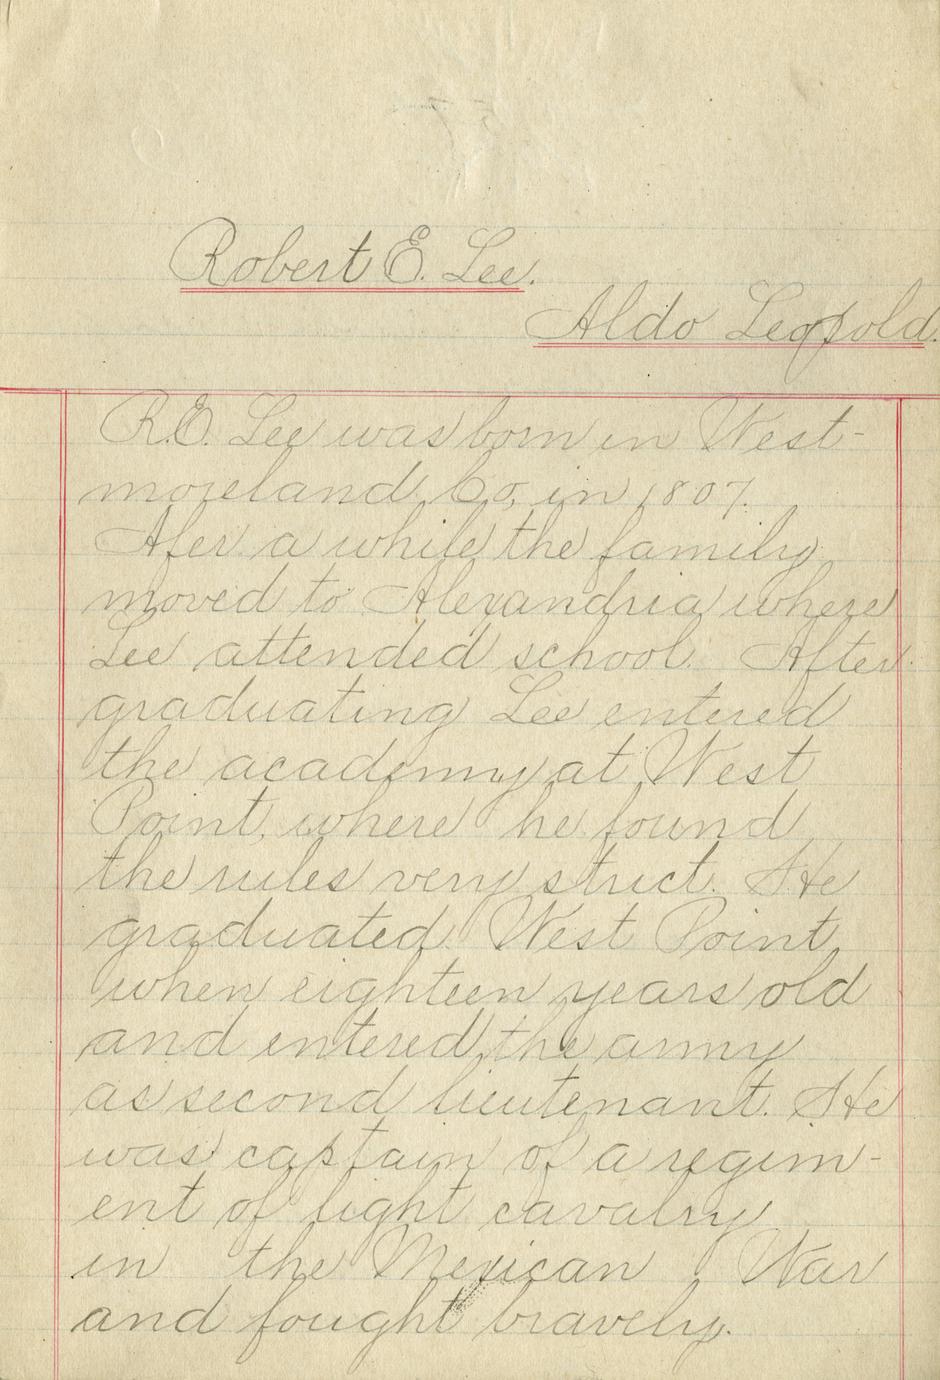 Robert E. Lee.
Aldo Leopold.
R.E. Lee was born in West-
moreland Co, in 1807.
Afer a while the family
moved to Alexandria where
Lee attended school. After
graduating Lee entered
the academy at West
Point, where he found
the rules very strict. He
graduated West Point
when eighteen years old
and entered the army
as second lieutenant. He
was captain of a regim-
ent of light cavalry
in the Mexican War
and fought bravely.